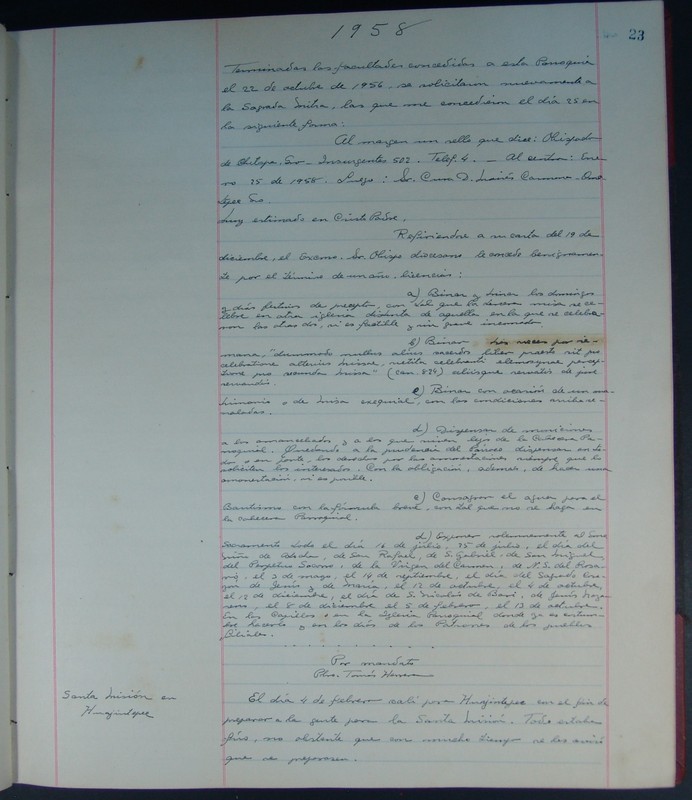 1958
23
Terminadas las facultades concedidas a esta Parroquia
el 22 de octubre de 1956, se solicitaron nuevamente a
la Sagrada Mitra, las que me concedieron el día 25 en
la siguiente forma:
Al margen un sello que dice: Obispado
de Chilapa, Gro - Insurgentes 502. Teléf. 4. - Al centro: Ene-
ro 25 de 1958. Luego: Sr. Cura D. Moisés Carmona. Ome-
tepec Gro.
Muy estimado en Cristo Padre.
Refiriéndose a su carta del 19 de
diciembre, el Excmo. Sr. Obispo diocesano le concede benignamen-
te por el término de un año, licencias:
a) Binar y trinar los domingos
y días festivos de precepto, con tal que la tercera misa se ce-
lebre en otra iglesia distinta de aquella en la que se celebra-
ron las otras dos, si es factible y sin grave incomodo.
b) Binar tres veces por se-
mana, "dummodo nullus alius sacerdos praesto sit pro
celebratione alterius missae, vetita celebranti elemosynae percep-
tione pro secunda missa" (can. 824) aliisque servatis de jure
servandis.
c) Binar con ocasión de un ma-
trimonio o de misa exequial, con las condiciones arriba se-
ñaladas.
d) Dispensar de moniciones
a los amancebados, y a los que viven lejos de la Cabecera Pa-
rroquial. Quedando a la prudencia del Párroco dispensar en to-
do o en parte, los demás por las amonestaciones siempre que lo
soliciten los interesados. Con la obligación, además, de hacer una
amonestación, si es posible.
e) Consagrar el agua para el
Bautismo con la fórmula breve, con tal que no se haga en
la cabecera Parroquial.
d) Exponer solemnemente al Smo
Sacramento todo el día 16 de julio, 25 de julio, el día del
niño de Atocha, de San Rafael, de S. Gabriel, de San Miguel,
del Perpetuo Socorro, de la Virgen del Carmen, de N.S. del Rosa-
rio, el 3 de mayo, el 14 de septiembre, el día del Sagrado Cora-
zón de Jesús y de María, el 12 de octubre, el 4 de octubre,
el 12 de diciembre, el día de S. Nicolás de Bari, de Jesús Naza-
reno, el 8 de diciembre el 5 de febrero, el 13 de octubre.
En las Capillas o en la Iglesia Parroquial donde ya es costum-
bre hacerlo y en los días de los Patrones de los pueblos
filiales.
Por mandato
Pbro. Tomás Herrera
Santa Misión en
Huajintepec
El día 4 de febrero salí para Huajintepec con el fin de
preparar a la gente para la Santa Misión. Todo estaba
frío, no obstante que con mucho tiempo se les avisó
que se preparasen.